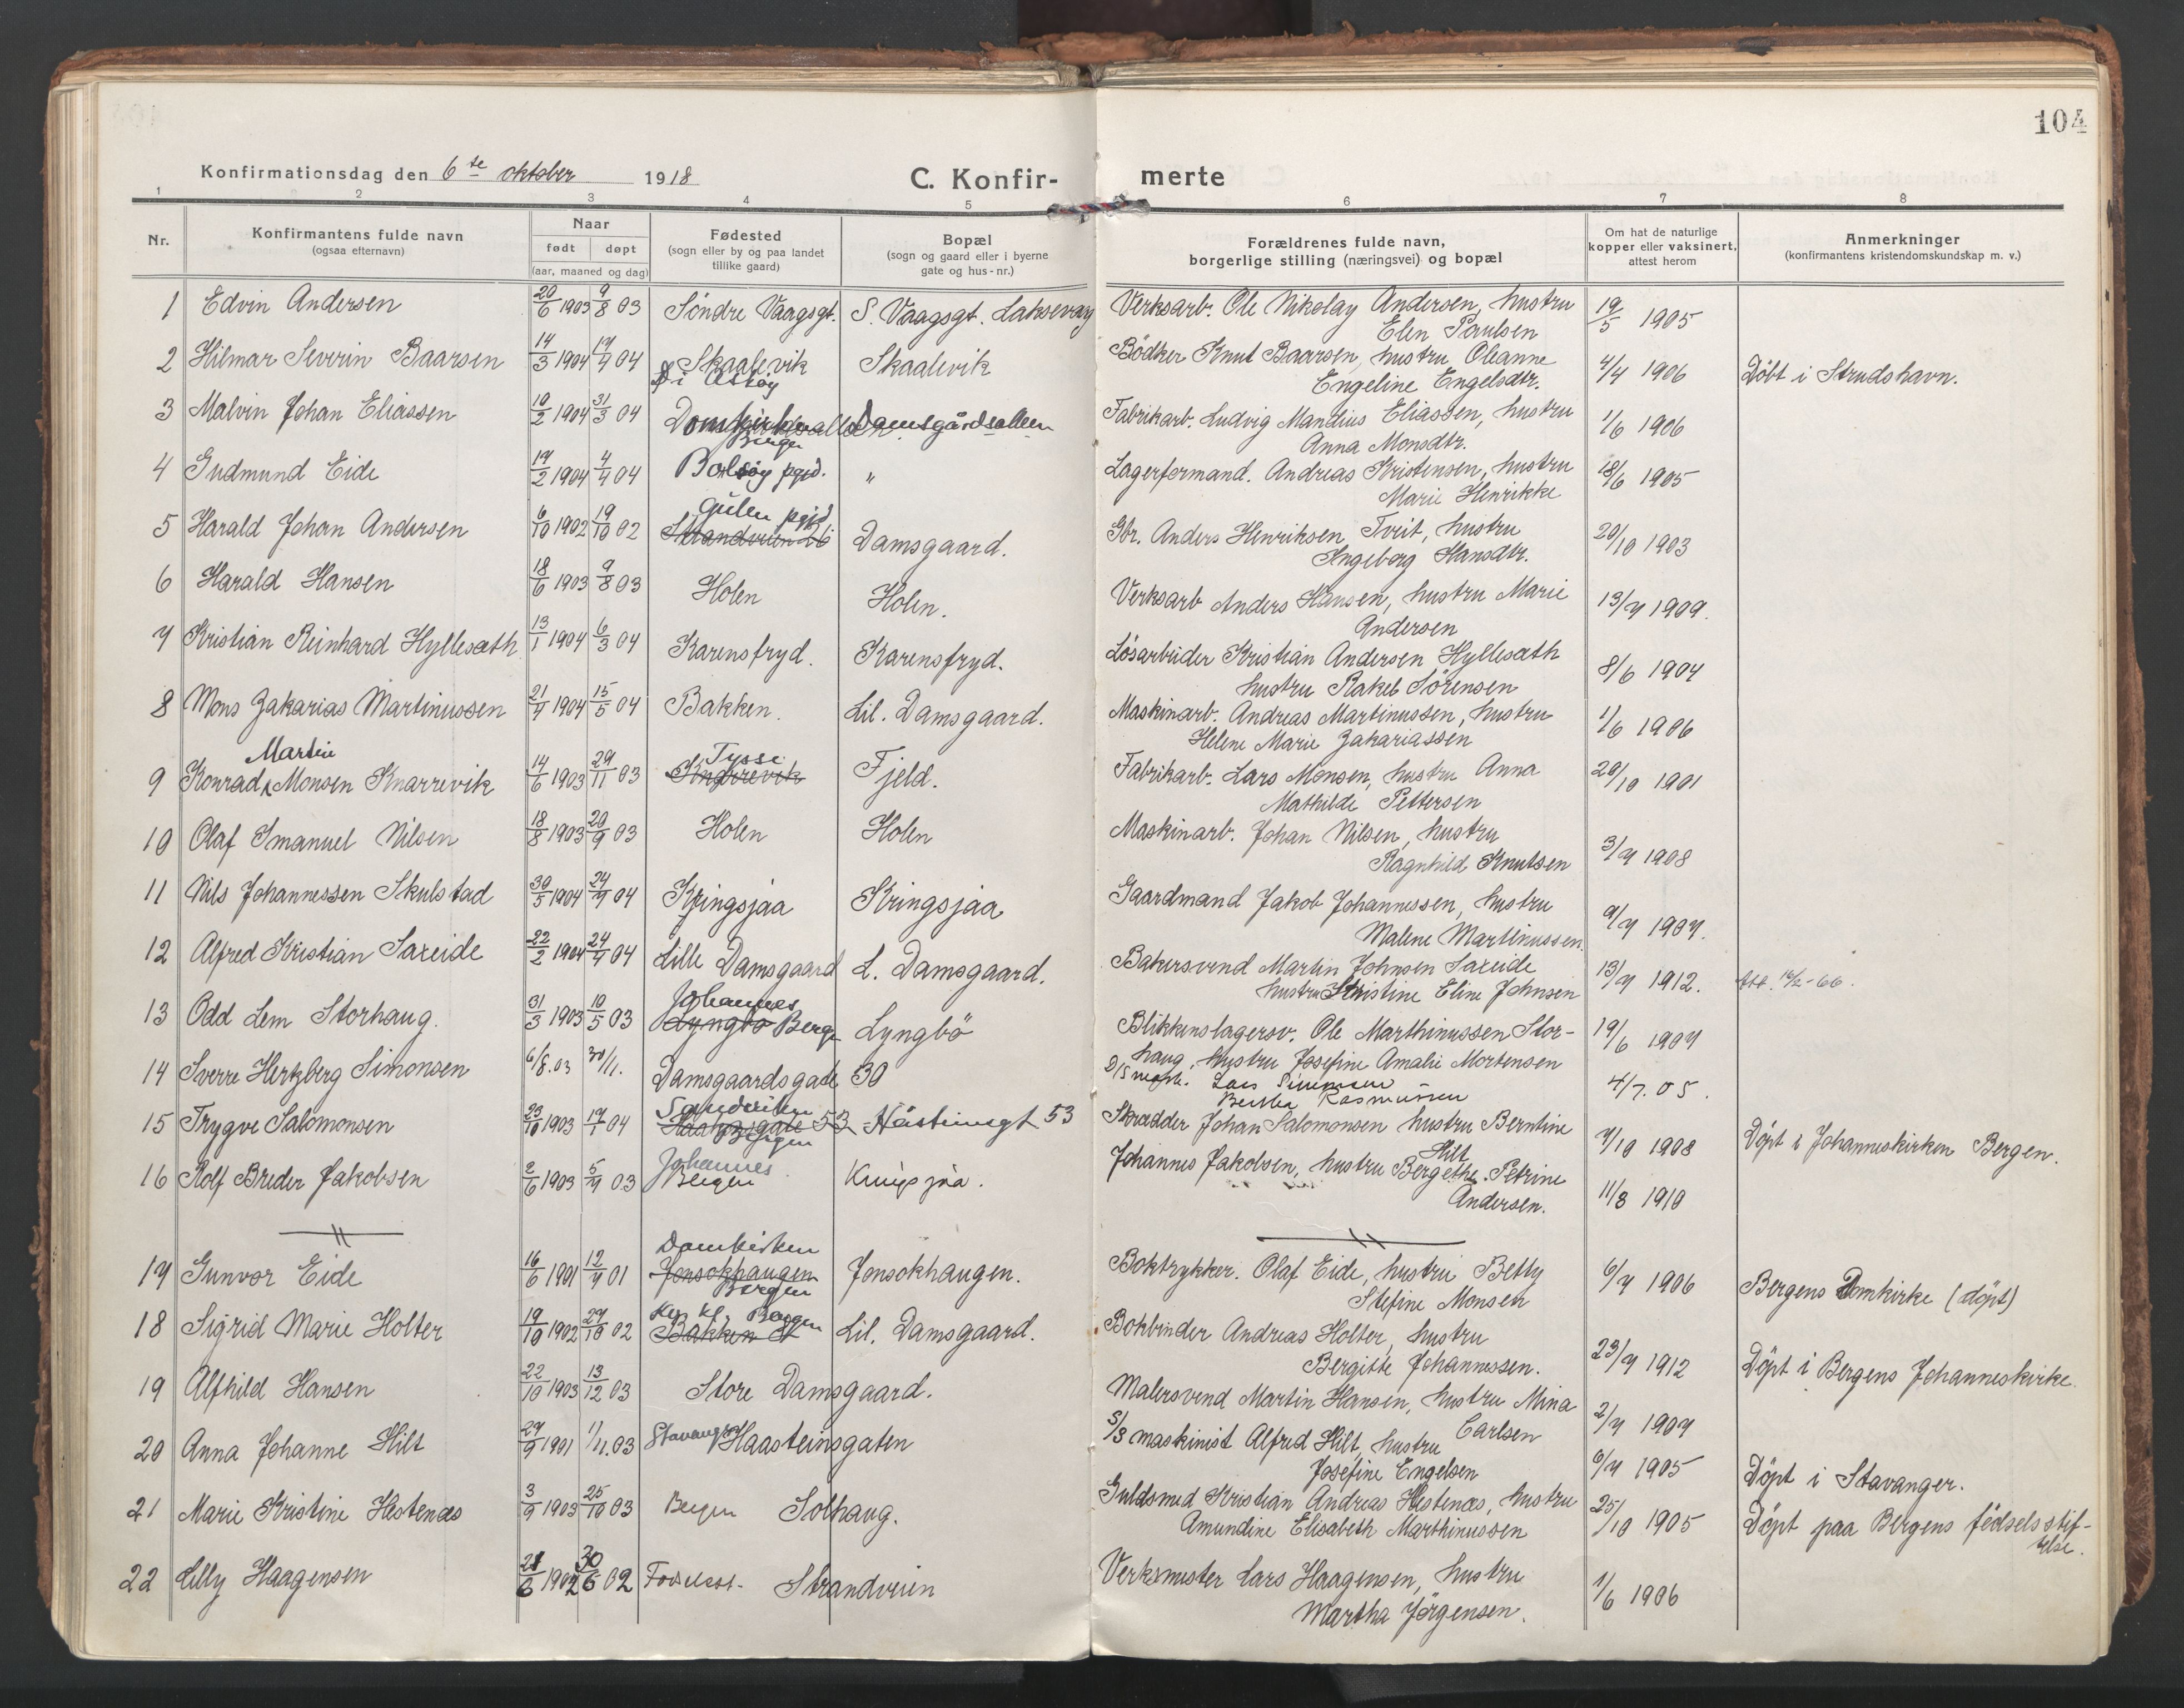 104
Konfirmationsdag den 6te oktober 1918 C. Konfir- merte
1 2 3 4 5 6 7 8
Nr. Konfirmantens fulde navn (ogsaa efternavn) Naar født døpt (aar, maaned og dag) Fødested (sogn eller by og paa landet tillike gaard) Bopæl (sogn og gaard eller i byerne gate og hus-nr.) Forældrenes fulde navn, borgerlige stilling (næringsvei) og bopæl Om hat de naturlige kopper eller vaksinert, attest herom Anmerkninger (konfirmantens kristendomskundskap m. v.)
1 Edvin Andersen 20/6 1903 9/8 03 Söndre Vaagsgt. S. Vaagsgt. Laksevaag Verksarb. Ole Nikolay Andersen, hustru 19/5 1905
Elen Paulsen
2 Hilmar Severin Baarsen 14/3 1904 17/4 04 Skaalevik Skaalevik Bödker Knut Baarsen, hustru Oleanne 4/4 1906 Döbt i Strudshavn.
i Askøy Engeline Engelsdtr.
3 Malvin Johan Eliassen 10/2 1904 31/3 04 Domkirken Damsgårdsalleen Fabrikarb. Ludvig Mandius Eliassen, hustru 1/6 1906
Bergen Anna Monsdtr.
4 Gudmund Eide 17/2 1904 4/4 04 Bolsöy pgjd. " Lagerformand. Andreas Kristensen, hustru 18/6 1905
Marie Henrikke
Gulen pgjd
5 Harald Johan Andersen 6/10 1902 19/10 02 Strandveien 26 Damsgaard. Gbr. Anders Henriksen Tveit, hustru 20/10 1903
Ingeborg Hansdtr.
6 Harald Hansen 18/6 1903 9/8 03 Holen Holen. Verksarb Anders Hansen, hustru Marie 13/7 1909.
Andersen
7 Kristian Reinhard Hyllesæth 13/1 1904 6/3 04 Karensfryd. Karensfryd. Lösarbeider Kristian Andersen Hyllesæth 8/6 1904
hustru Rakel Sörensen
8 Mons Zakarias Martinussen 21/4 1904 15/5 04 Bakken. Lil. Damsgaard. Maskinarb. Andreas Martinussen, hustru 1/6 1906
Helene Marie Zakariassen
Martin Tysse
9 Konrad Monsen Knarrevik 14/6 1903 29/11 03 Knarrevik Fjeld. Fabrikarb. Lars Monsen, hustru Anna 20/10 1901
Mathilde Pettersen
10 Olaf Imanuel Nilsen 18/8 1903 20/9 03 Holen Holen Maskinarb. Johan Nilsen, hustru 3/7 1908
Ragnhild Knutsen
11 Nils Johannessen Skulstad 30/5 1904 24/7 04 Kringsjaa Kringsjaa Gaardmand Jakob Johannessen, hustru 9/7 1907.
Malene Martinussen.
12 Alfred Kristian Saxeide 22/2 1904 24/4 04 Lille Damsgaard L. Damsgaard. Bakersvend Martin Johnsen Saxeide 13/7 1912.
hustru Kristine Eline Johnsen
Johannes
13 Odd Lem Storhaug. 31/3 1903 10/5 03 Lyngbö Bergen Lyngbö Blikkenslagersv. Ole Marthinussen Stor- 19/6 1907
haug, hustru Josefine Amalie Mortensen
14 Sverre Hertzberg Simonsen 6/8.03 30/11. Damsgaardsgade 30 D/S mask. Lars Simonsen 4/7.05.
Bertha Rasmussen
Sandviken
15 Trygve Salomonsen 23/10 1903 17/1 04 53 Håsteinsgt 53 Skrædder Johan Salomonsen hustru Berntine 7/10 1908 Döpt i Johanneskirken Bergen.
Bergen Hilt
Johannes
16 Rolf Breder Jakobsen 2/6 1903 5/7 03 Bergen Kringsjaa. Johannes Jakobsen, hustru Bergethe Petrine 11/8 1910
Andersen.
Domkirken
17 Gunvor Eide 16/6 1901 12/7 01 Jonsokhaugen Jonsokhaugen. Boktrykker. Olaf Eide, hustru Betty 6/7 1906 Bergens Domkirke (döpt)
Bergen Stefine Monsen
Bergen
18 Sigrid Marie Holter 19/10 1902 29/10 02 Bakken Lil. Damsgaard. Bokbinder Andreas Holter, hustru 23/7 1912 Döpt i Bergens Johanneskirke.
Bergitte Johannessen.
19 Alfhild Hansen 22/10 1903 13/12 03 Store Damsgaard. Malersvend Martin Hansen, hustru Mina 2/7 1907
Carlsen
20 Anna Johanne Hilt 27/9 1901 1/11.03 Stavanger Haasteinsgaten S/S maskinist Alfred Hilt, hustru 6/7 1905 Döpt i Stavanger.
Josefine Engelsen
21 Marie Kristine Hestenæs 3/9 1903 25/10 03 Bergen Solhaug. Guldsmed Kristian Andreas Hestenæs, hustru 25/10 1905 Döpt paa Bergens födselsstif-
Amundine Elisabeth Marthinussen telse.
22 Lilly Haagensen 21/6 1902 30/6 02 Födselsst. Strandveien Verksmester Lars Haagensen, hustru 1/6 1906
Martha Jörgensen.